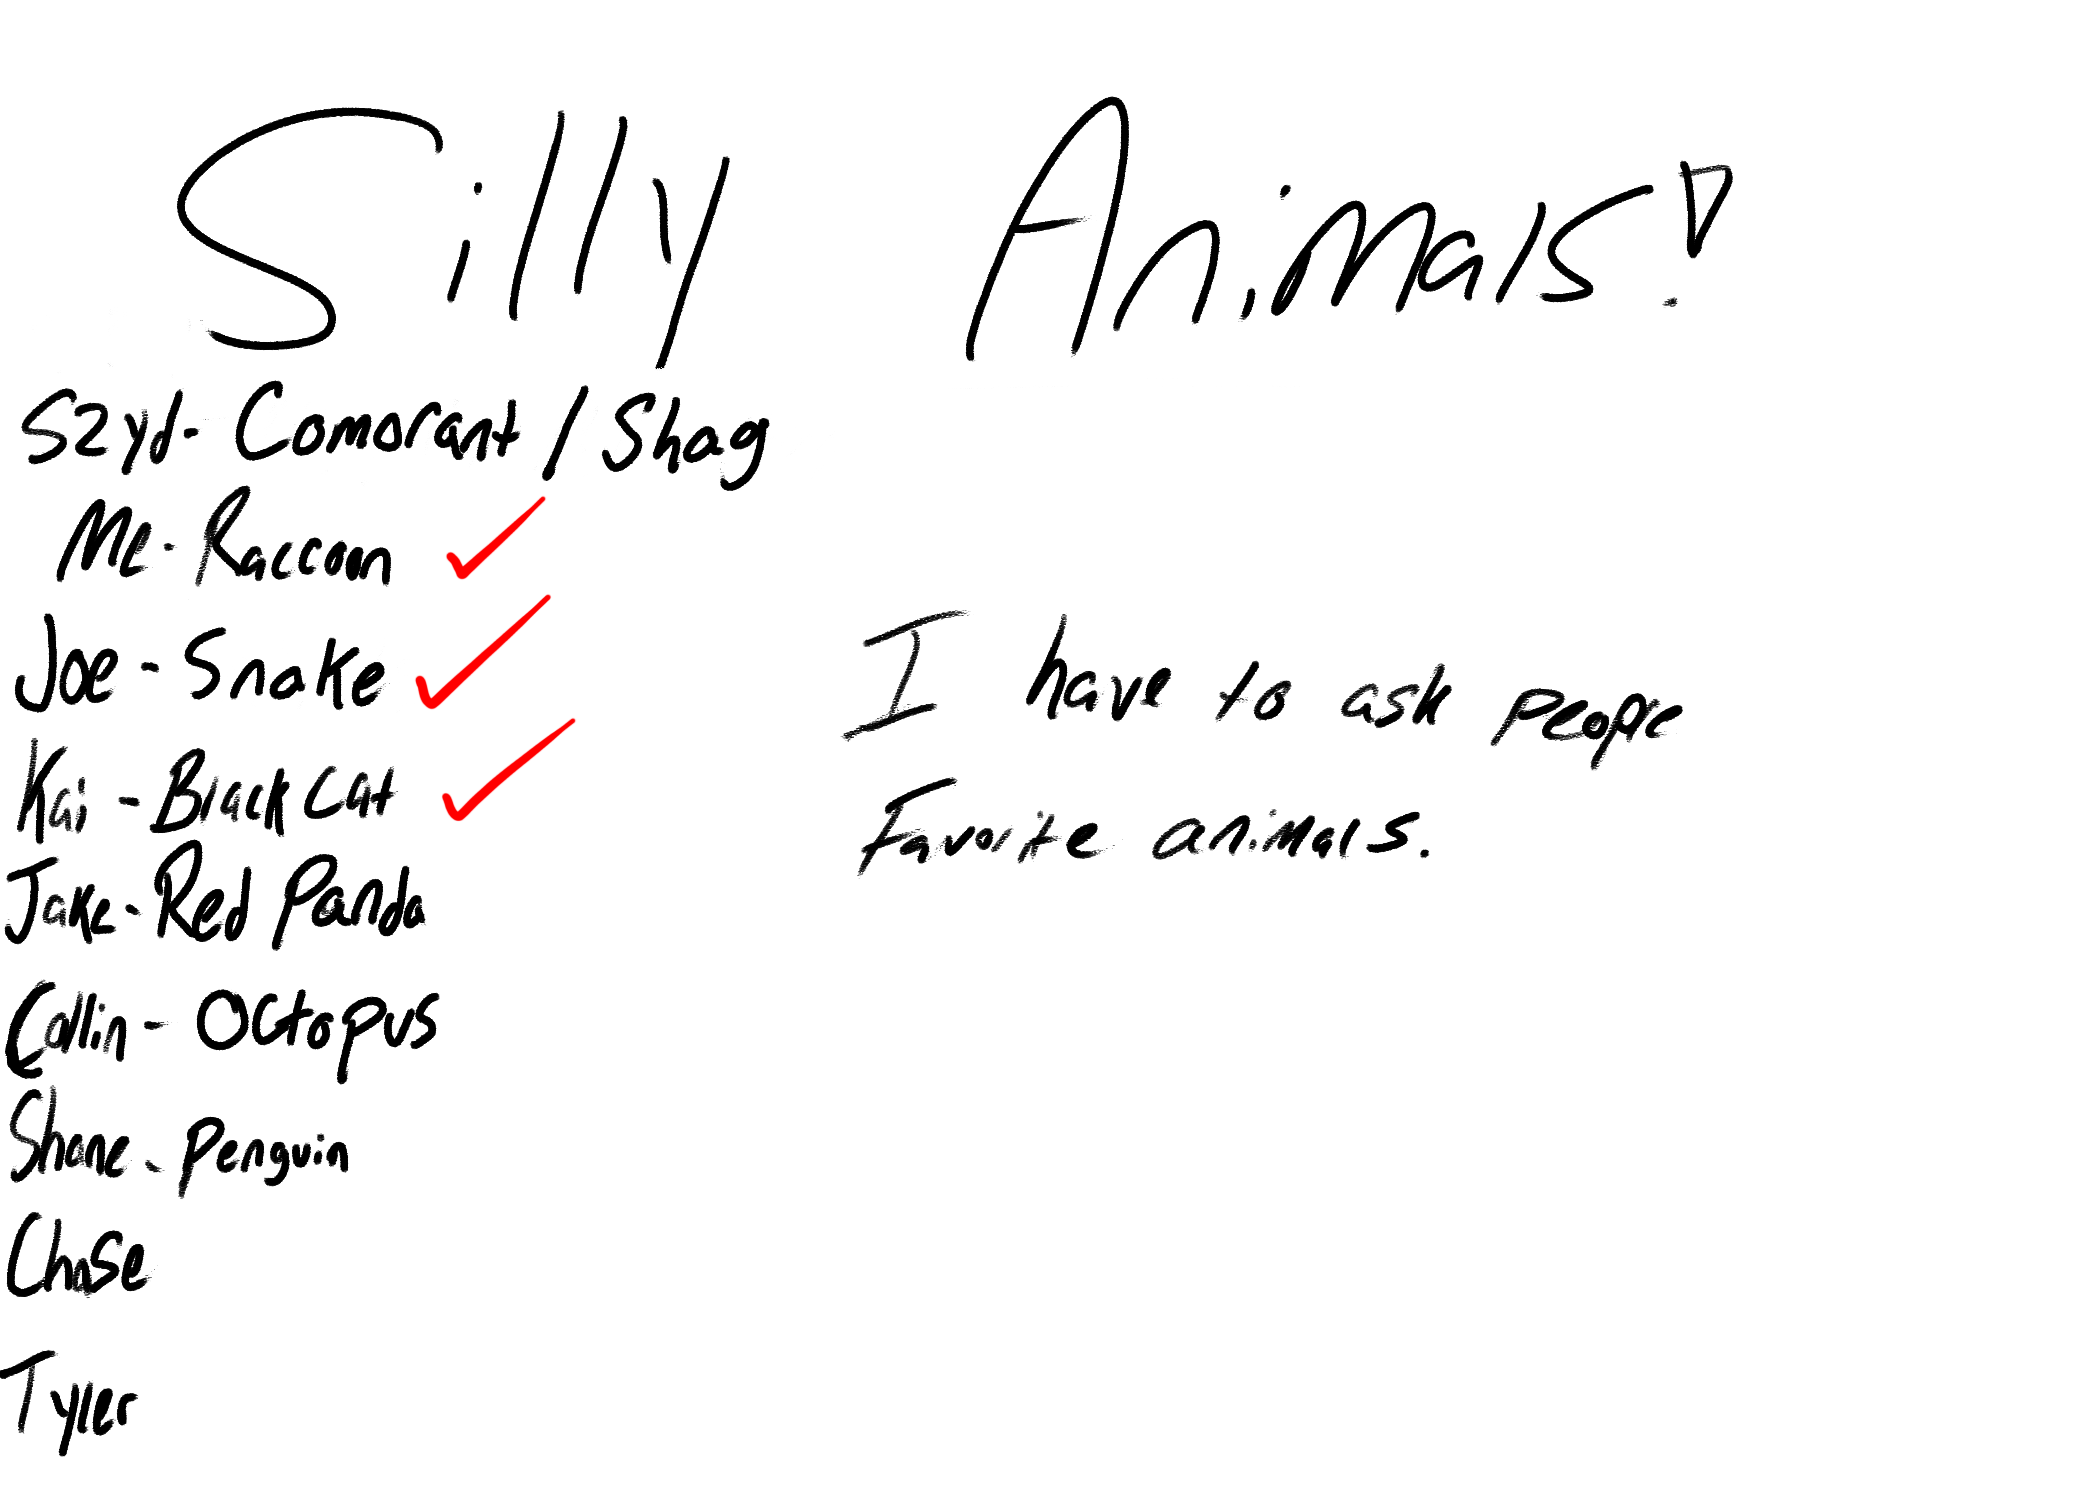 Silly Animals!
Szyd- Comorant / Shag
Me- Raccoon
Joe - Snake
Kai - Black Cat
Jake- Red Panda
Collin - Octopus
Shane - Penguin
Chase
Tyler
I have to ask people
Favorite animals.